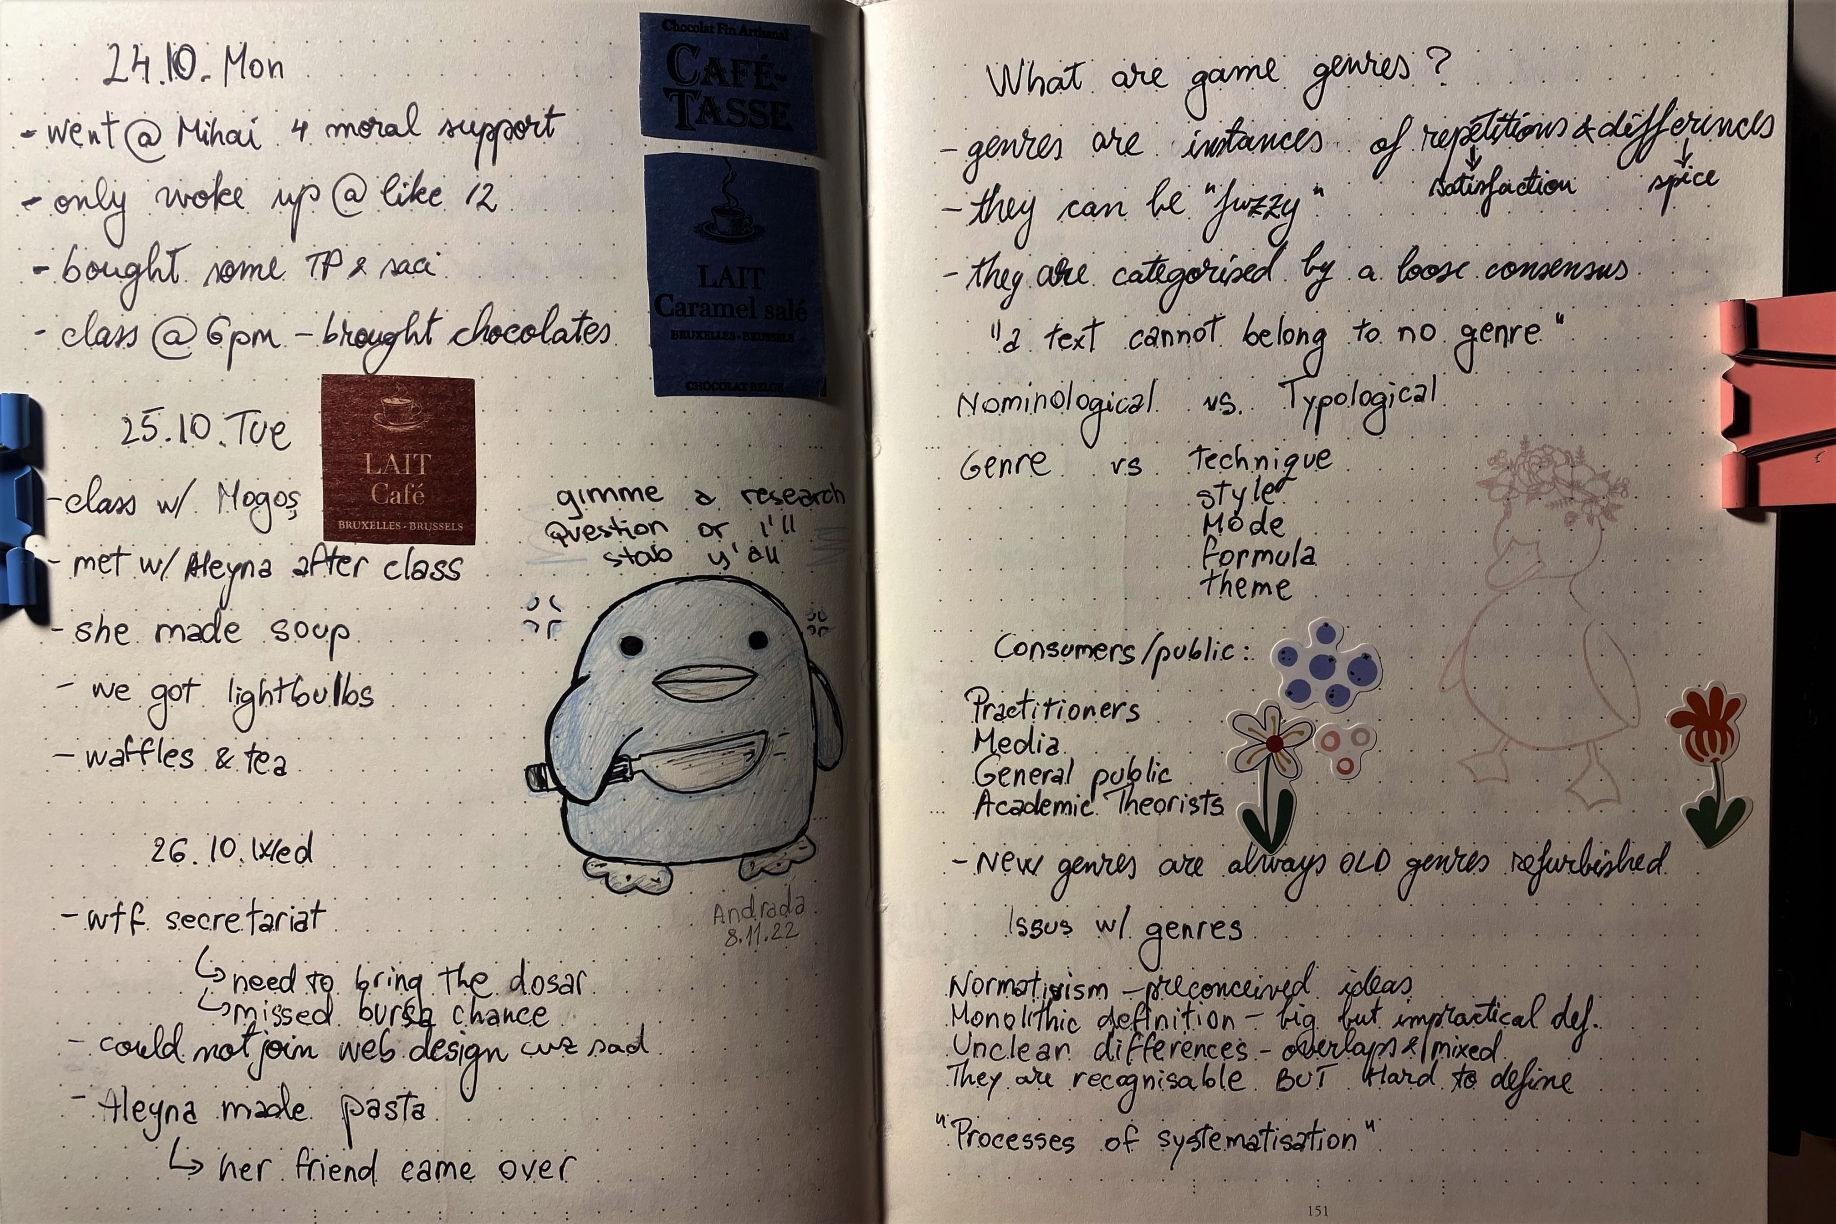 24.10. Mon
- went @ Mihai 4 moral support
- only woke up @ like 12
- bought some TP & saci
- class @ 6pm - brought chocolates
Chocolat Fin Artisanal
CAFÉ-
TASSE
LAIT
Caramel salé
BRUXELLES - BRUSSELS
CHOCOLAT BELGE
25.10. Tue
- class w/ Mogoș
- met w/ Aleyna after class
- she made soup
- we got lightbulbs
- waffles & tea
LAIT
Café
BRUXELLES - BRUSSELS
gimme a research
question or i'll
stab y'all
Andrada
8.11.22
26.10. Wed
- wtf secretariat
↳ need to bring the dosar
↳ missed bursa chance
- could not join web design cuz sad
- Aleyna made pasta
↳ her friend came over
What are game genres?
- genres are instances of repetitions & differences
↓ ↓
satisfaction spice
- they can be "fuzzy"
- they are categorised by a loose consensus
"a text cannot belong to no genre"
Nominological vs. Typological
Genre vs technique
style
Mode
formula
theme
Consumers/public:
Practitioners
Media
General public
Academic Theorists
- New genres are always OLD genres refurbished
Issus w/ genres
Normativism - preconceived ideas
Monolithic definition - big but impractical def.
Unclear differences - overlaps & mixed
They are recognisable BUT Hard to define
"Processes of systematisation"
151